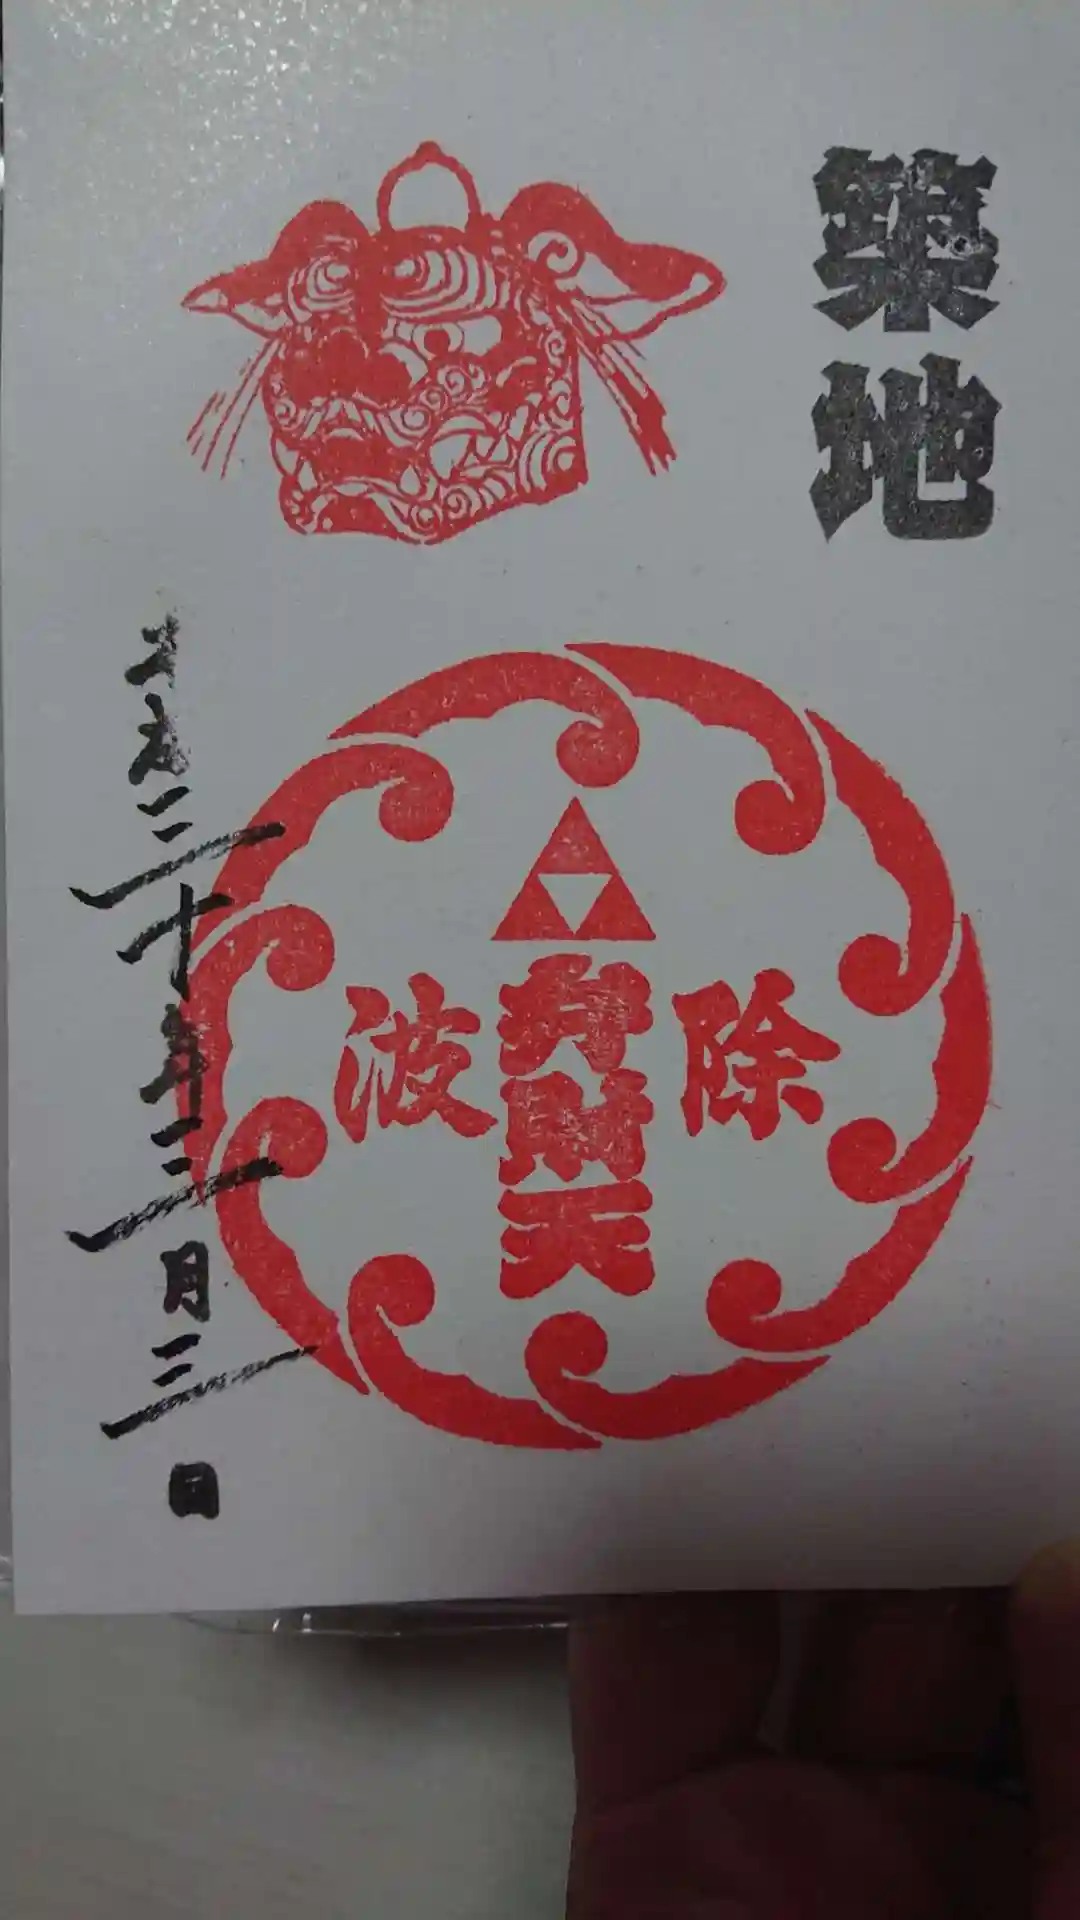 築地
波除
弁財天
平成三十年三月三日